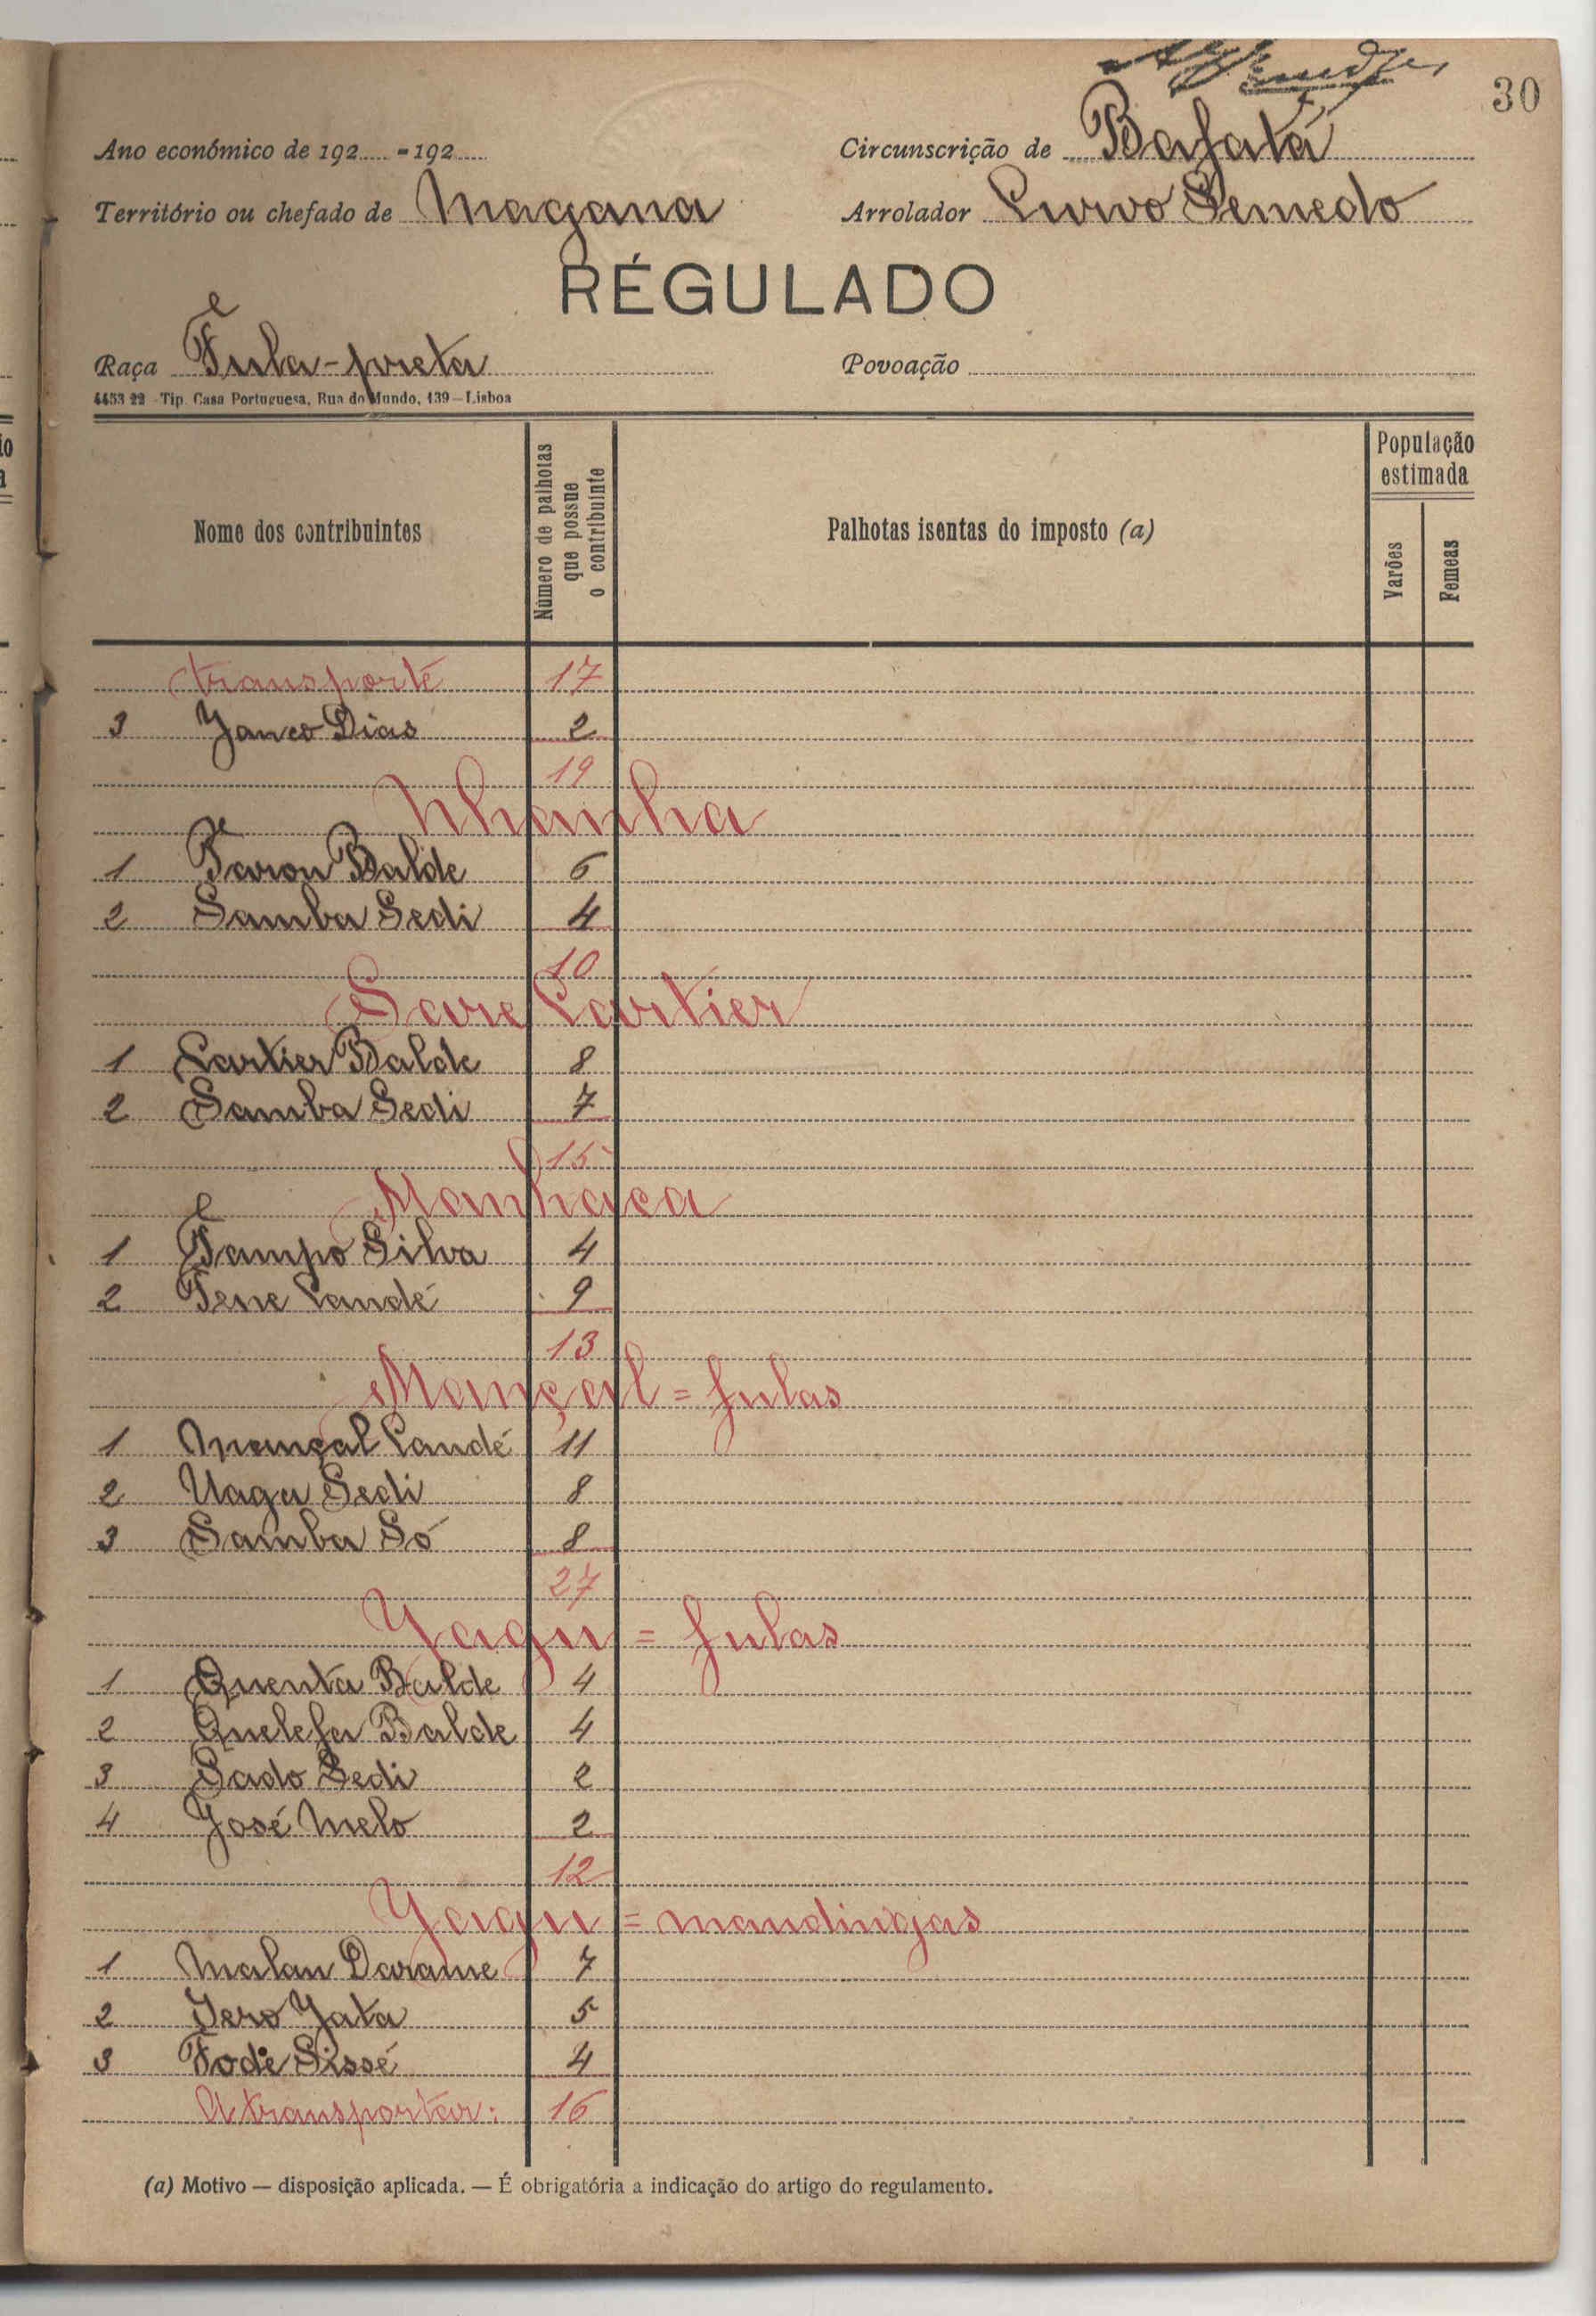 30
Ano económico de 192..... - 192.....
Circunscrição de Bafatá
Território ou chefado de Magana
Arrolador Curvo Semedo
RÉGULADO
Raça Fula-preta
Povoação
4453 22 - Tip. Casa Portuguesa, Rua do Mundo, 139 - Lisboa
Nome dos contribuintes
Número de palhotas que possue o contribuinte
Palhotas isentas do imposto (a)
População estimada
Varões
Femeas
transporte 17
3 Janco Dias 2
19
Nhanha
1 Balde 6
2 Samba Sedi 4
10
Sare Cartier
1 Cartier Balde 8
2 Samba Sedi 7
15
Manhaca
1 Tampo Silva 4
2 Tene Candé 9
13
Mançal = fulas
1 Mançal Candé 11
2 Uaga Sedi 8
3 Samba Só 8
27
Yagu = fulas
1 Quenta Balde 4
2 Quelefa Balde 4
3 Sado Sedi 2
4 José Melo 2
12
Yagu = mandingas
1 Malan Darame 7
2 Jero Jata 5
3 Fodé Sissé 4
A transportar: 16
(a) Motivo — disposição aplicada. — É obrigatória a indicação do artigo do regulamento.